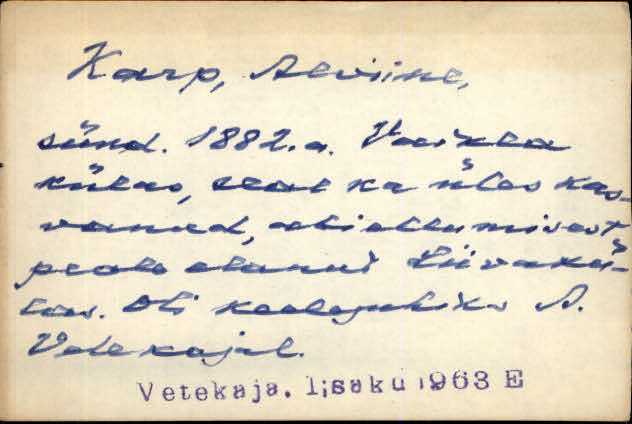 Karp, Alviine,
sünd. 1882. a. Vaikla
külas, seal ka üles kas-
vanud, abiellumisest
peale elanud Liivakü-
las. Oli keelejuhiks A.
Vetekajal.
Vetekaja, Iisaku 1963 E